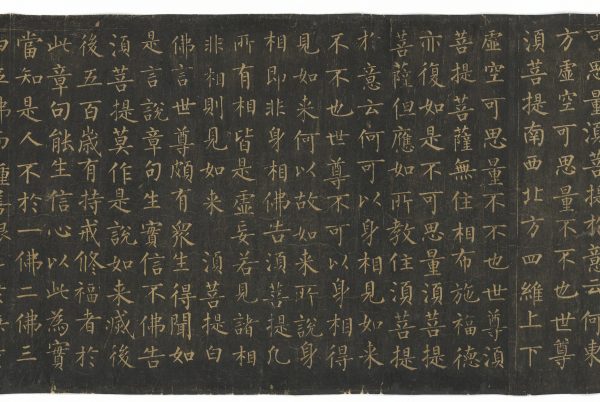 可思量湏菩提於意云何東
方虛空可思量不不也世尊
湏菩提南西北方四維上下
虛空可思量不不也世尊湏
菩提菩薩無住相布施福德
亦復如是不可思量湏菩提
菩薩但應如所教住湏菩提
於意云何可以身相見如来
不不也世尊不可以身相得
見如来何以故如来所說身
相即非身相佛告湏菩提凢
所有相皆是虛妄若見諸相
非相則見如来 湏菩提白
佛言世尊頗有衆生得聞如
是言說章句生實信不佛告
湏菩提莫作是說如来滅後
後五百歲有持戒修福者於
此章句能生信心以此為實
當知是人不於一佛二佛三
五佛而種善根